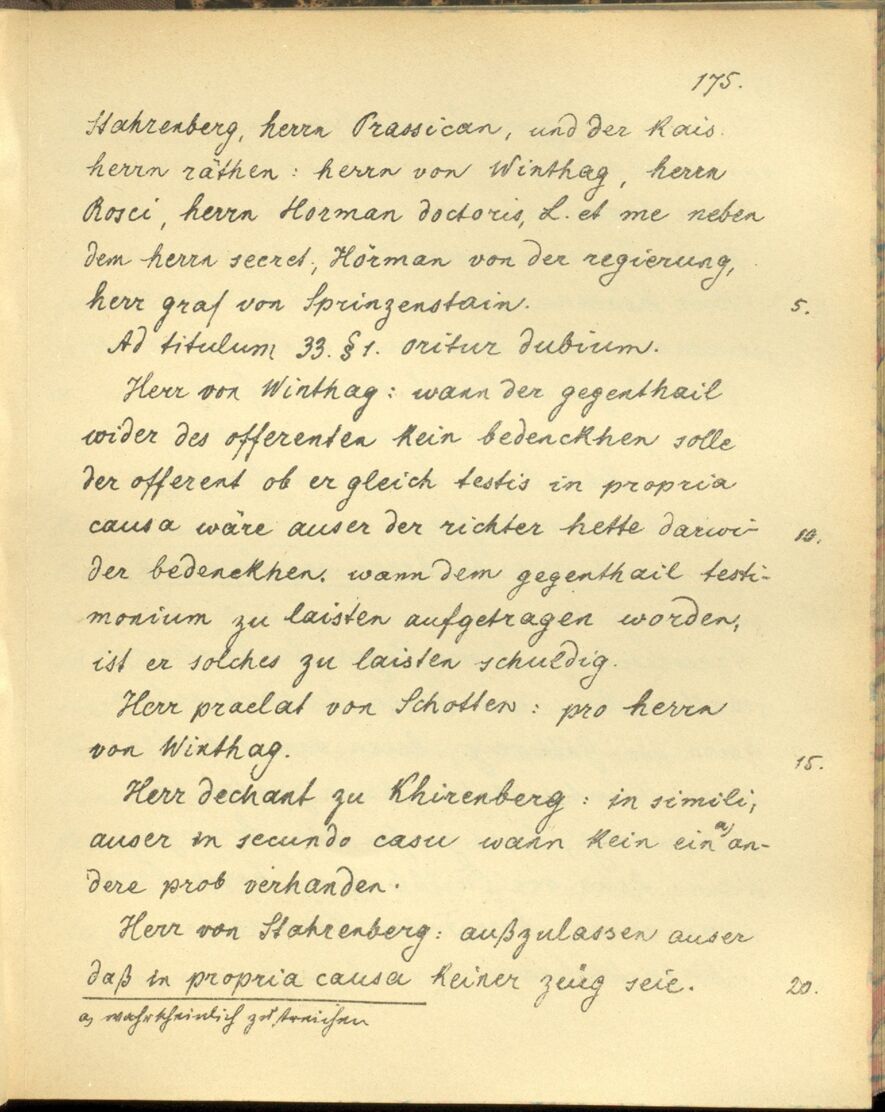 175.
Stahrenberg, herrn Prassican, und der Kais.
herrn räthen: herrn von Winthag, herrn
Rosci, herrn Horman doctoris, L. et me neben
dem herrn secret., Hörman von der regierung,
herr graf von Sprinzenstain. 5.
Ad titulum 33. § 1. oritur dubium.
Herr von Winthag: wann der gegenthail
wider des offerenten kein bedenckhen solle
der offerent ob er gleich testis in propria
causa wäre auser der richter hette darwi- 10.
der bedenckhen. wann dem gegenthail testi-
monium zu laisten aufgetragen worden,
ist er solches zu laisten schuldig.
Herr praelat von Schotten: pro herrn
von Winthag. 15.
Herr dechant zu Khirenberg: in simili,
auser in secundo casu wann kein ein a) an-
dere prob verhanden.
Herr von Stahrenberg: außzulassen auser
daß in propria causa keiner zeüg seie. 20.
a) wahrscheinlich zu streichen